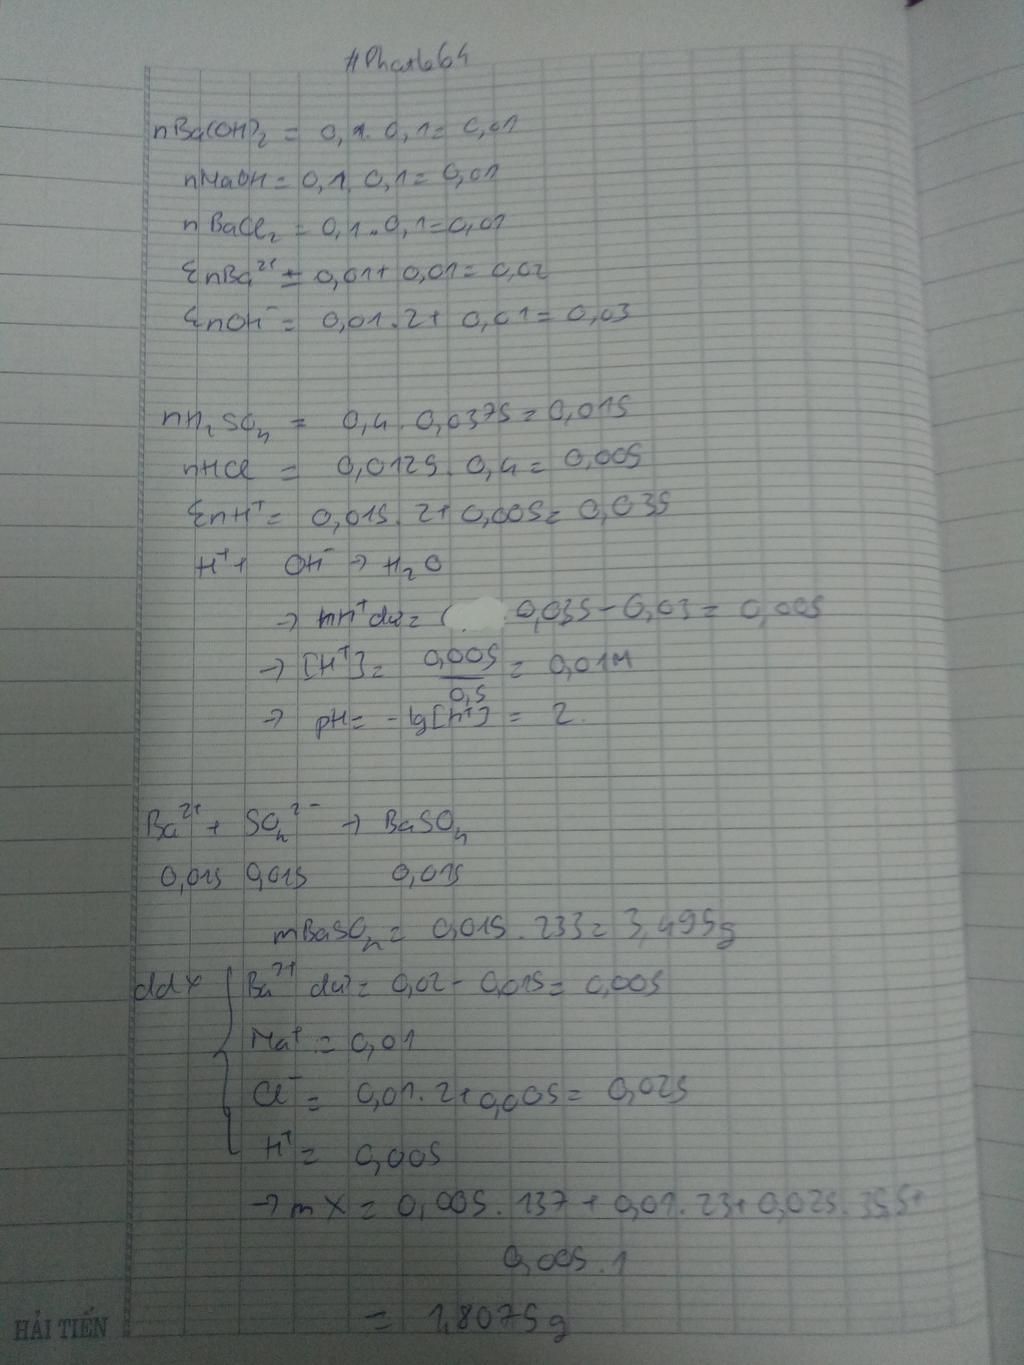 #Phatb64
nBa(OH)2 = 0,1. 0,1 = 0,01
nNaOH = 0,1. 0,1 = 0,01
nBaCl2 = 0,1. 0,1 = 0,01
ΣnBa²⁺ = 0,01 + 0,01 = 0,02
ΣnOH⁻ = 0,01.2 + 0,01 = 0,03
nH2SO4 = 0,4. 0,0375 = 0,015
nHCl = 0,0125. 0,4 = 0,005
ΣnH⁺ = 0,015. 2 + 0,005 = 0,035
H⁺ + OH⁻ → H2O
→ nH⁺ dư = ( 0,035 - 0,03 = 0,005
→ [H⁺] = 0,005/0,5 = 0,01M
→ pH = -lg[H⁺] = 2.
Ba²⁺ + SO4²⁻ → BaSO4
0,015 0,015 0,015
mBaSO4 = 0,015. 233 = 3,495g
ddX { Ba²⁺ dư = 0,02 - 0,015 = 0,005
Na⁺ = 0,01
Cl⁻ = 0,01. 2 + 0,005 = 0,025
H⁺ = 0,005
→ mX = 0,005. 137 + 0,01. 23 + 0,025. 35,5 +
0,005. 1
= 1,8075g
HẢI TIẾN